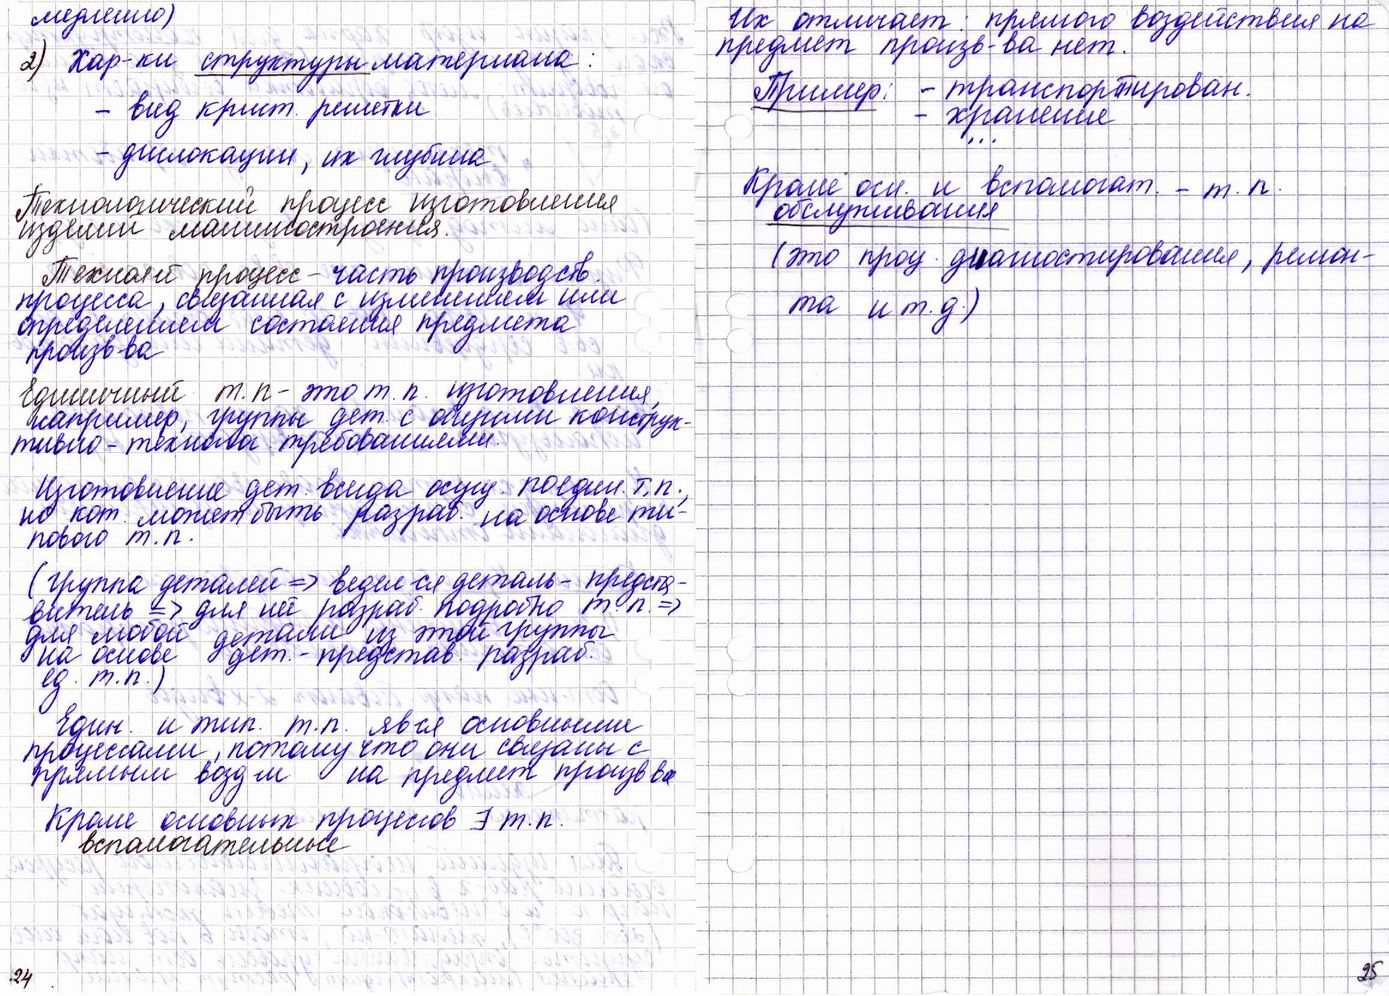 медленно)
2) Хар-ки структуры материала:
- вид крист. решетки
- дислокации, их глубина
Технологический процесс изготовления
изделий машиностроения.
Технол-й процесс - часть производств.
процесса, связанная с изменением или
определением состояния предмета
произв-ва
Единичный т.п - это т.п. изготовления,
например, группы дет. с общими конструк-
тивно-технолог. требованиями.
Изготовление дет. всегда осущ. по един. т.п.,
но кот. может быть разраб. на основе ти-
пового т.п.
(группа деталей => выдел-ся деталь-предста-
витель => для неё разраб. подробно т.п. =>
для любой детали из этой группы
на основе дет.-представ. разраб.
ед. т.п.)
Един. и тип. т.п. явл-ся основными
процессами, потому что они связаны с
прямым возд-м на предмет произв-ва
Кроме основных процессов ∃ т.п.
вспомогательные
24
Их отличает: прямого воздействия на
предмет произв-ва нет.
Пример: - транспортирован.
- хранение
...
Кроме осн. и вспомогат. - т.п.
обслуживания
(это проц. диагностирования, ремон-
та и т.д.)
25